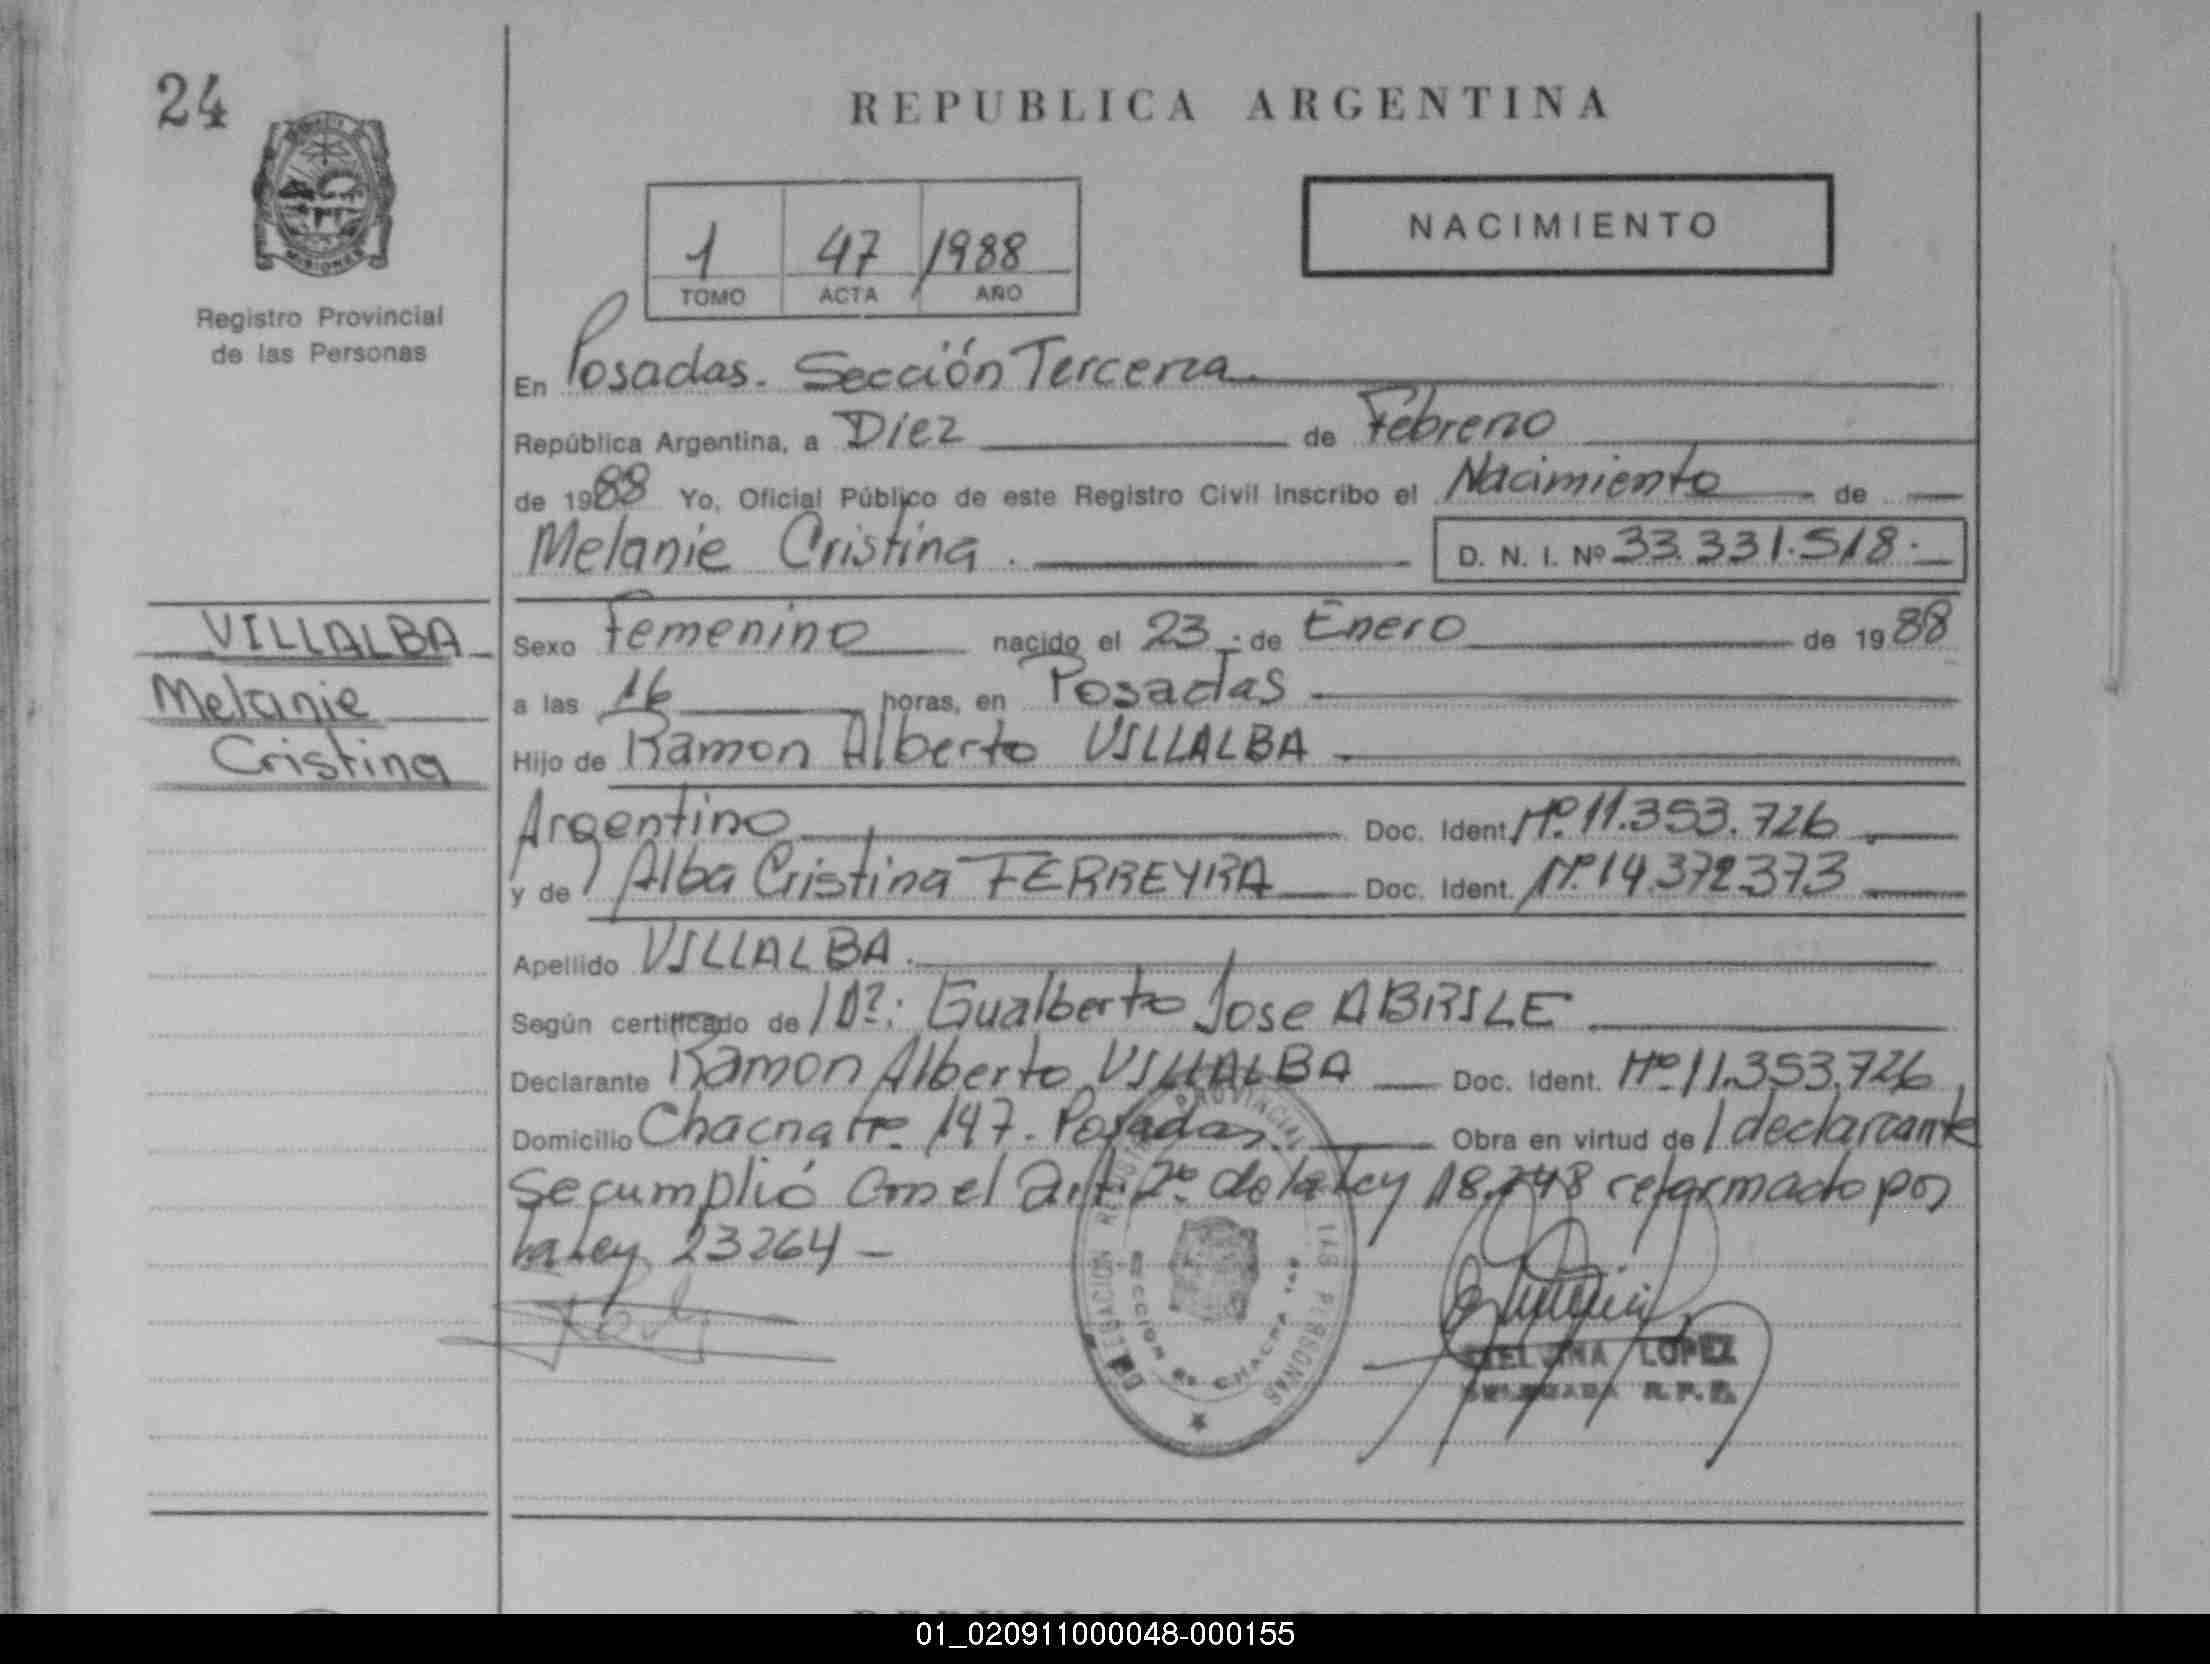 24
REPUBLICA ARGENTINA
MISIONES
Registro Provincial
de las Personas
1 47 1988
TOMO ACTA AÑO
NACIMIENTO
En Posadas. Sección Tercera
República Argentina, a Diez de Febrero
de 1988 Yo, Oficial Público de este Registro Civil Inscribo el Nacimiento de
Melanie Cristina. D. N. I. Nº 33.331.518.
VILLALBA
Melanie
Cristina
Sexo Femenino nacido el 23 de Enero de 1988
a las 16 horas, en Posadas
Hijo de Ramon Alberto VILLALBA
Argentino Doc. Ident. Nº 11.353.726
y de Alba Cristina FERREYRA Doc. Ident. Nº 14.372.373
Apellido VILLALBA.
Según certificado de Gualberto Jose ABRILE
Declarante Ramon Alberto VILLALBA Doc. Ident. Nº 11.353.726
Domicilio Chacra 147. Posadas. Obra en virtud de declarante
Se cumplió con el Art. 2º de la Ley 18.248 reformado por
la Ley 23264
DELEGACION REGISTRO PROVINCIAL DE LAS PERSONAS
SECCION CHACRA
LOPEZ
DELEGADA R.P.P.
01_020911000048-000155